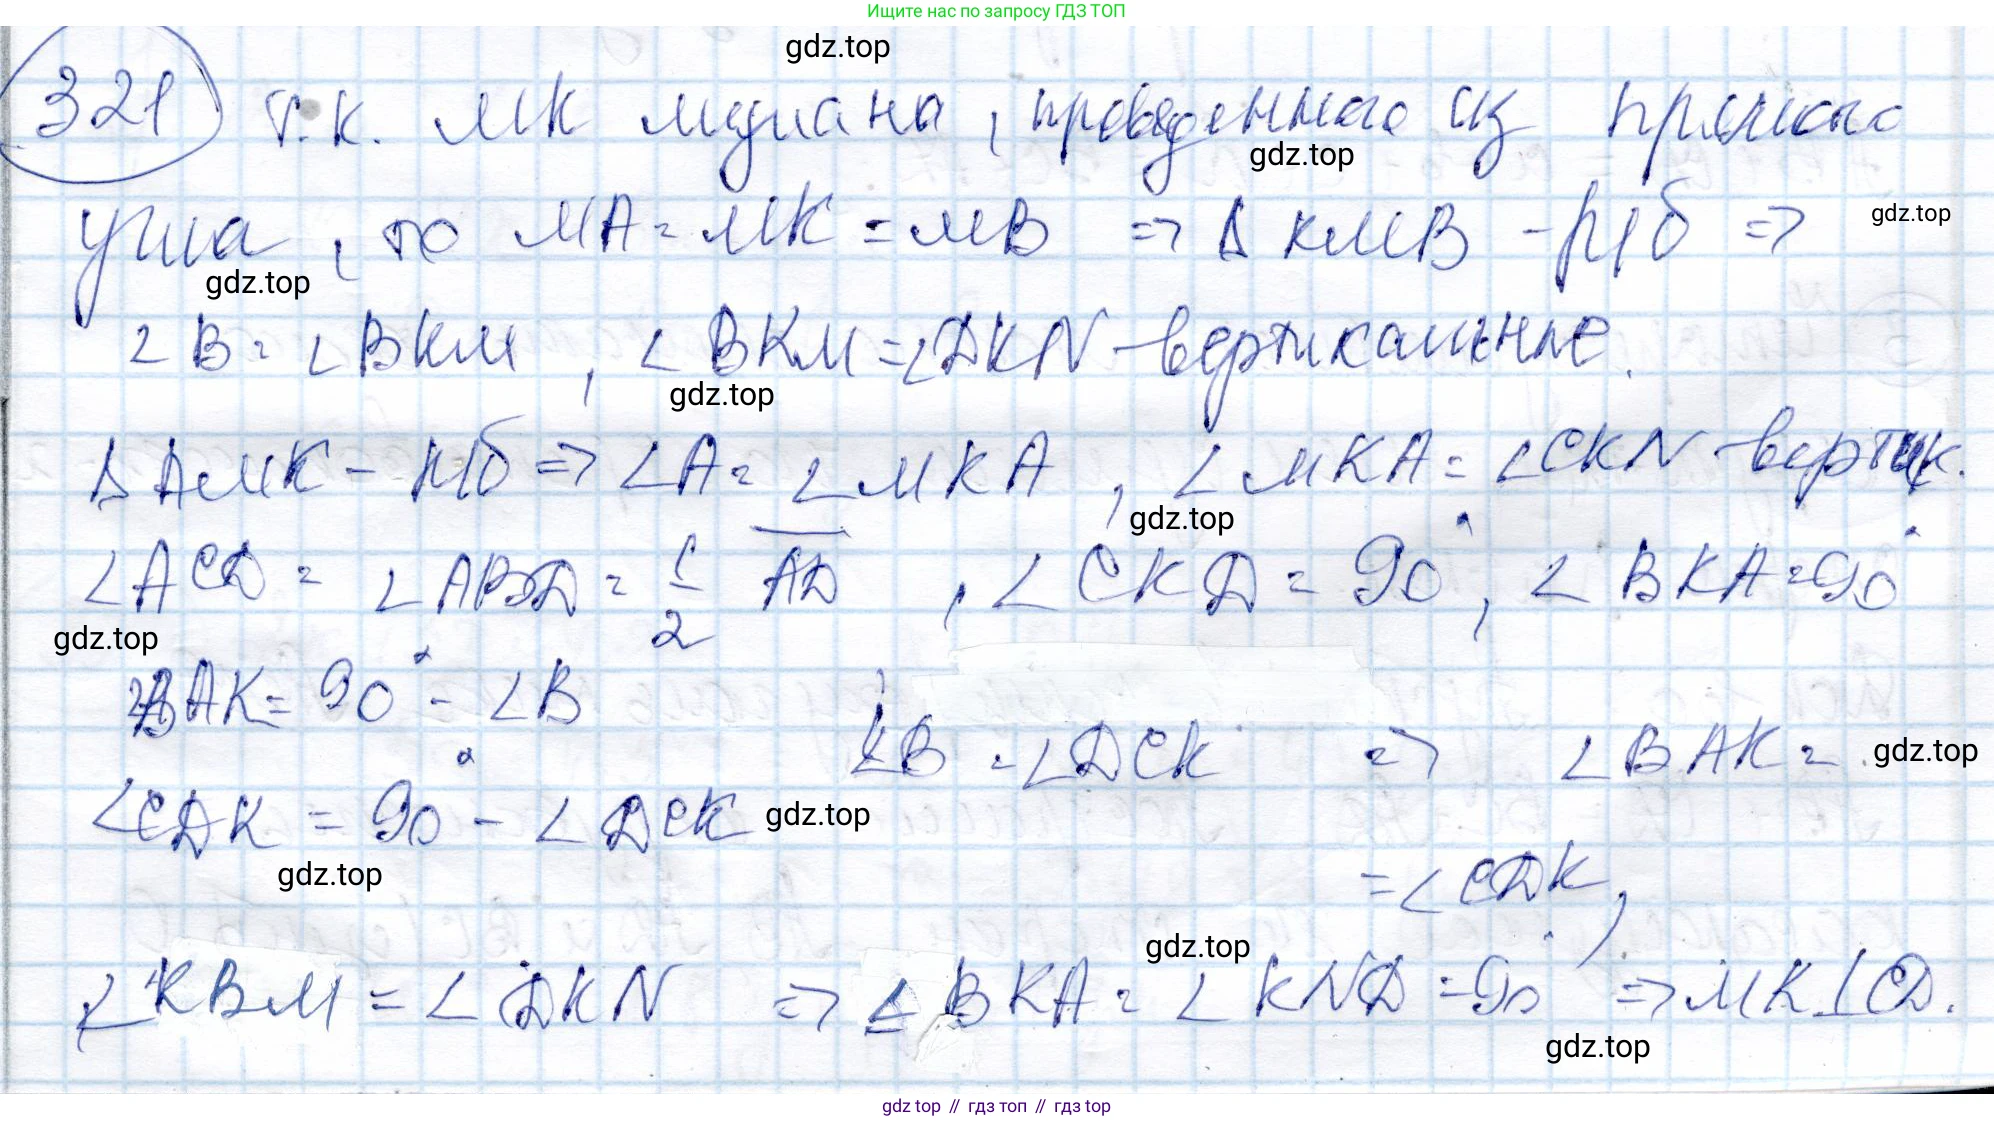 Ищите нас по запросу ГДЗ ТОП
gdz.top
321 т.к. MK медиана, проведенная из прямого
gdz.top
угла, то MA = MK = MB => Δ KMB - р/б =>
gdz.top
gdz.top
∠B = ∠BKM, ∠BKM = ∠DKN - вертикальные.
gdz.top
Δ AMK - р/б => ∠A = ∠MKA, ∠MKA = ∠CKN - вертик.
gdz.top
∠ACD = ∠ABD = 1/2 AD, ∠CKD = 90°, ∠BKA = 90°
gdz.top
∠BAK = 90° - ∠B
∠B = ∠DCK => ∠BAK =
gdz.top
∠CDK = 90° - ∠DCK
gdz.top
gdz.top
= ∠CDK,
gdz.top
∠KBM = ∠DKN => ∠BKA = ∠KND = 90° => MK ⊥ CD.
gdz.top
gdz top // гдз топ // гдз top